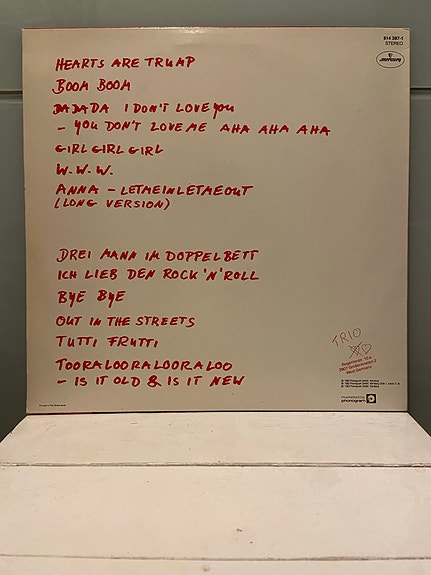 814 397-1
STEREO
mercury
HEARTS ARE TRUMP
BOOM BOOM
DADADA I DON'T LOVE YOU
- YOU DON'T LOVE ME AHA AHA AHA
GIRL GIRL GIRL
W.W.W.
ANNA - LETMEINLETMEOUT
(LONG VERSION)
DREI MANN IM DOPPELBETT
ICH LIEB DEN ROCK 'N' ROLL
BYE BYE
OUT IN THE STREETS
TUTTI FRUTTI
TOORALOORALOORALOO
- IS IT OLD & IS IT NEW
TRIO
Regenterstr. 10 a
2907 Großenkneten 2
West Germany
phonogram